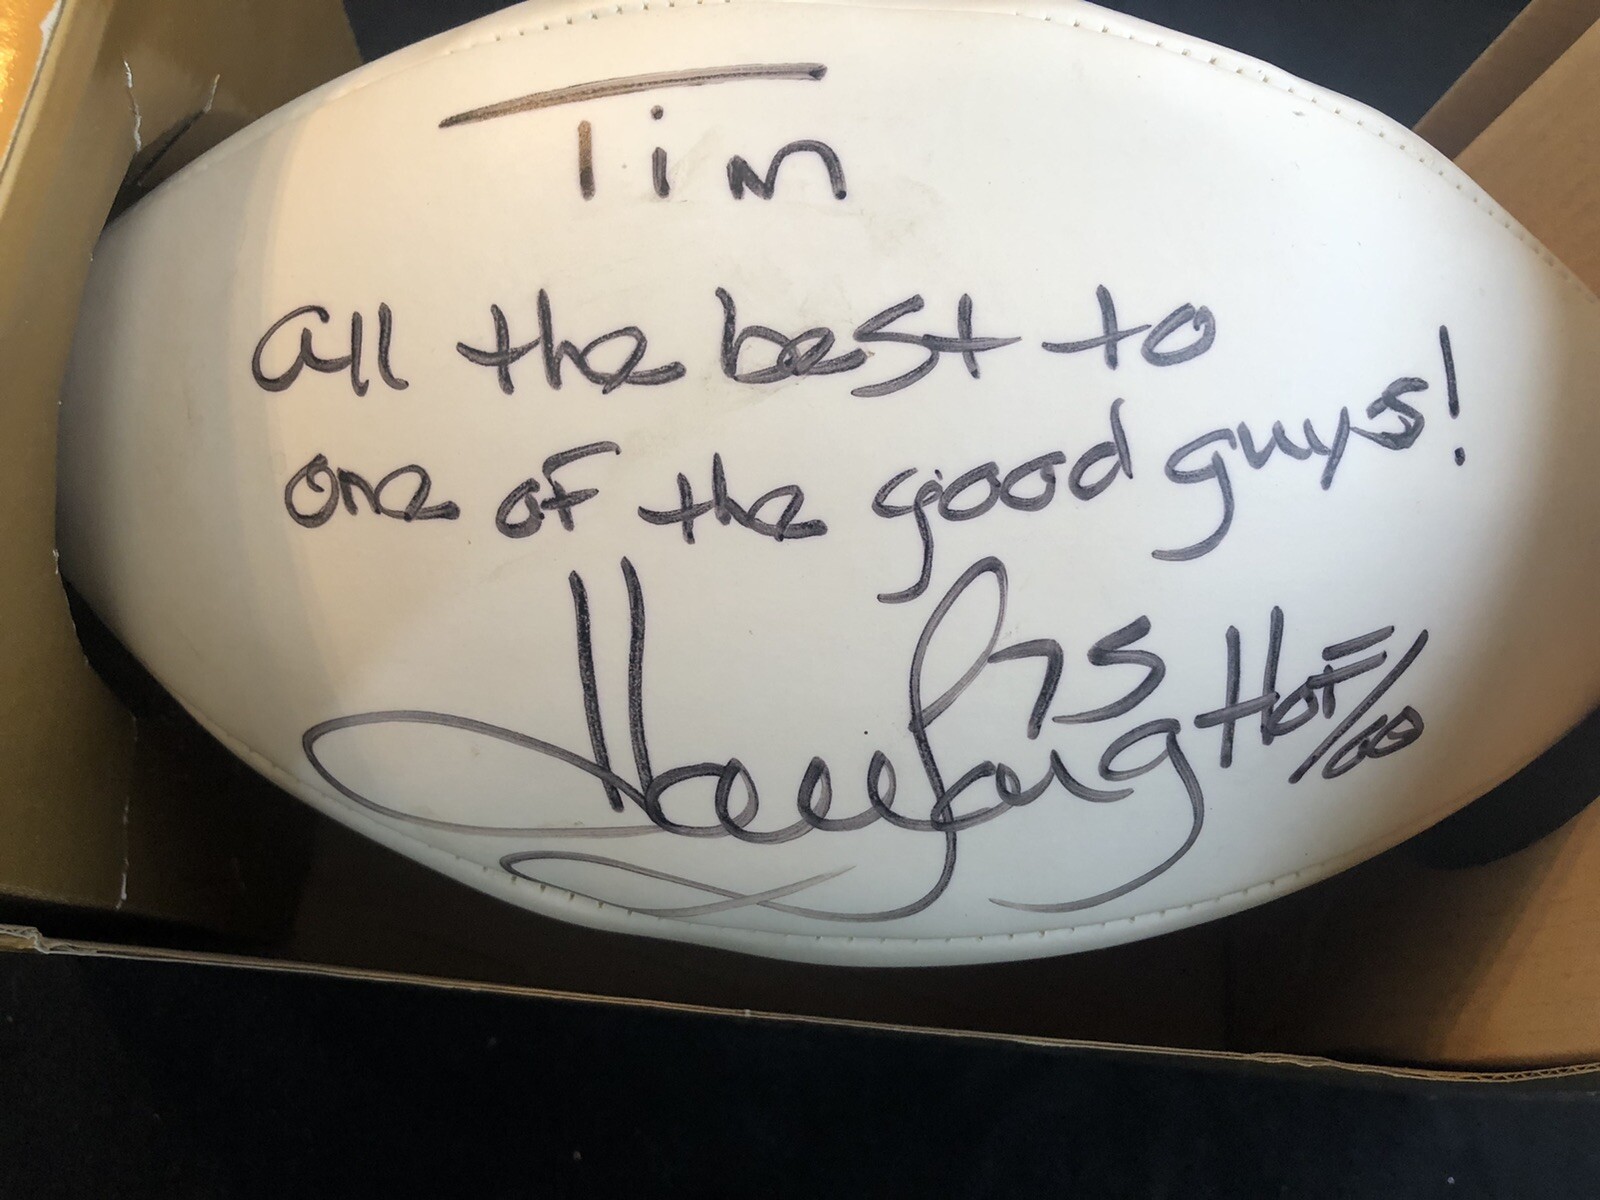 Tim
all the best to
one of the good guys!
Howie Long 75 HOF/00